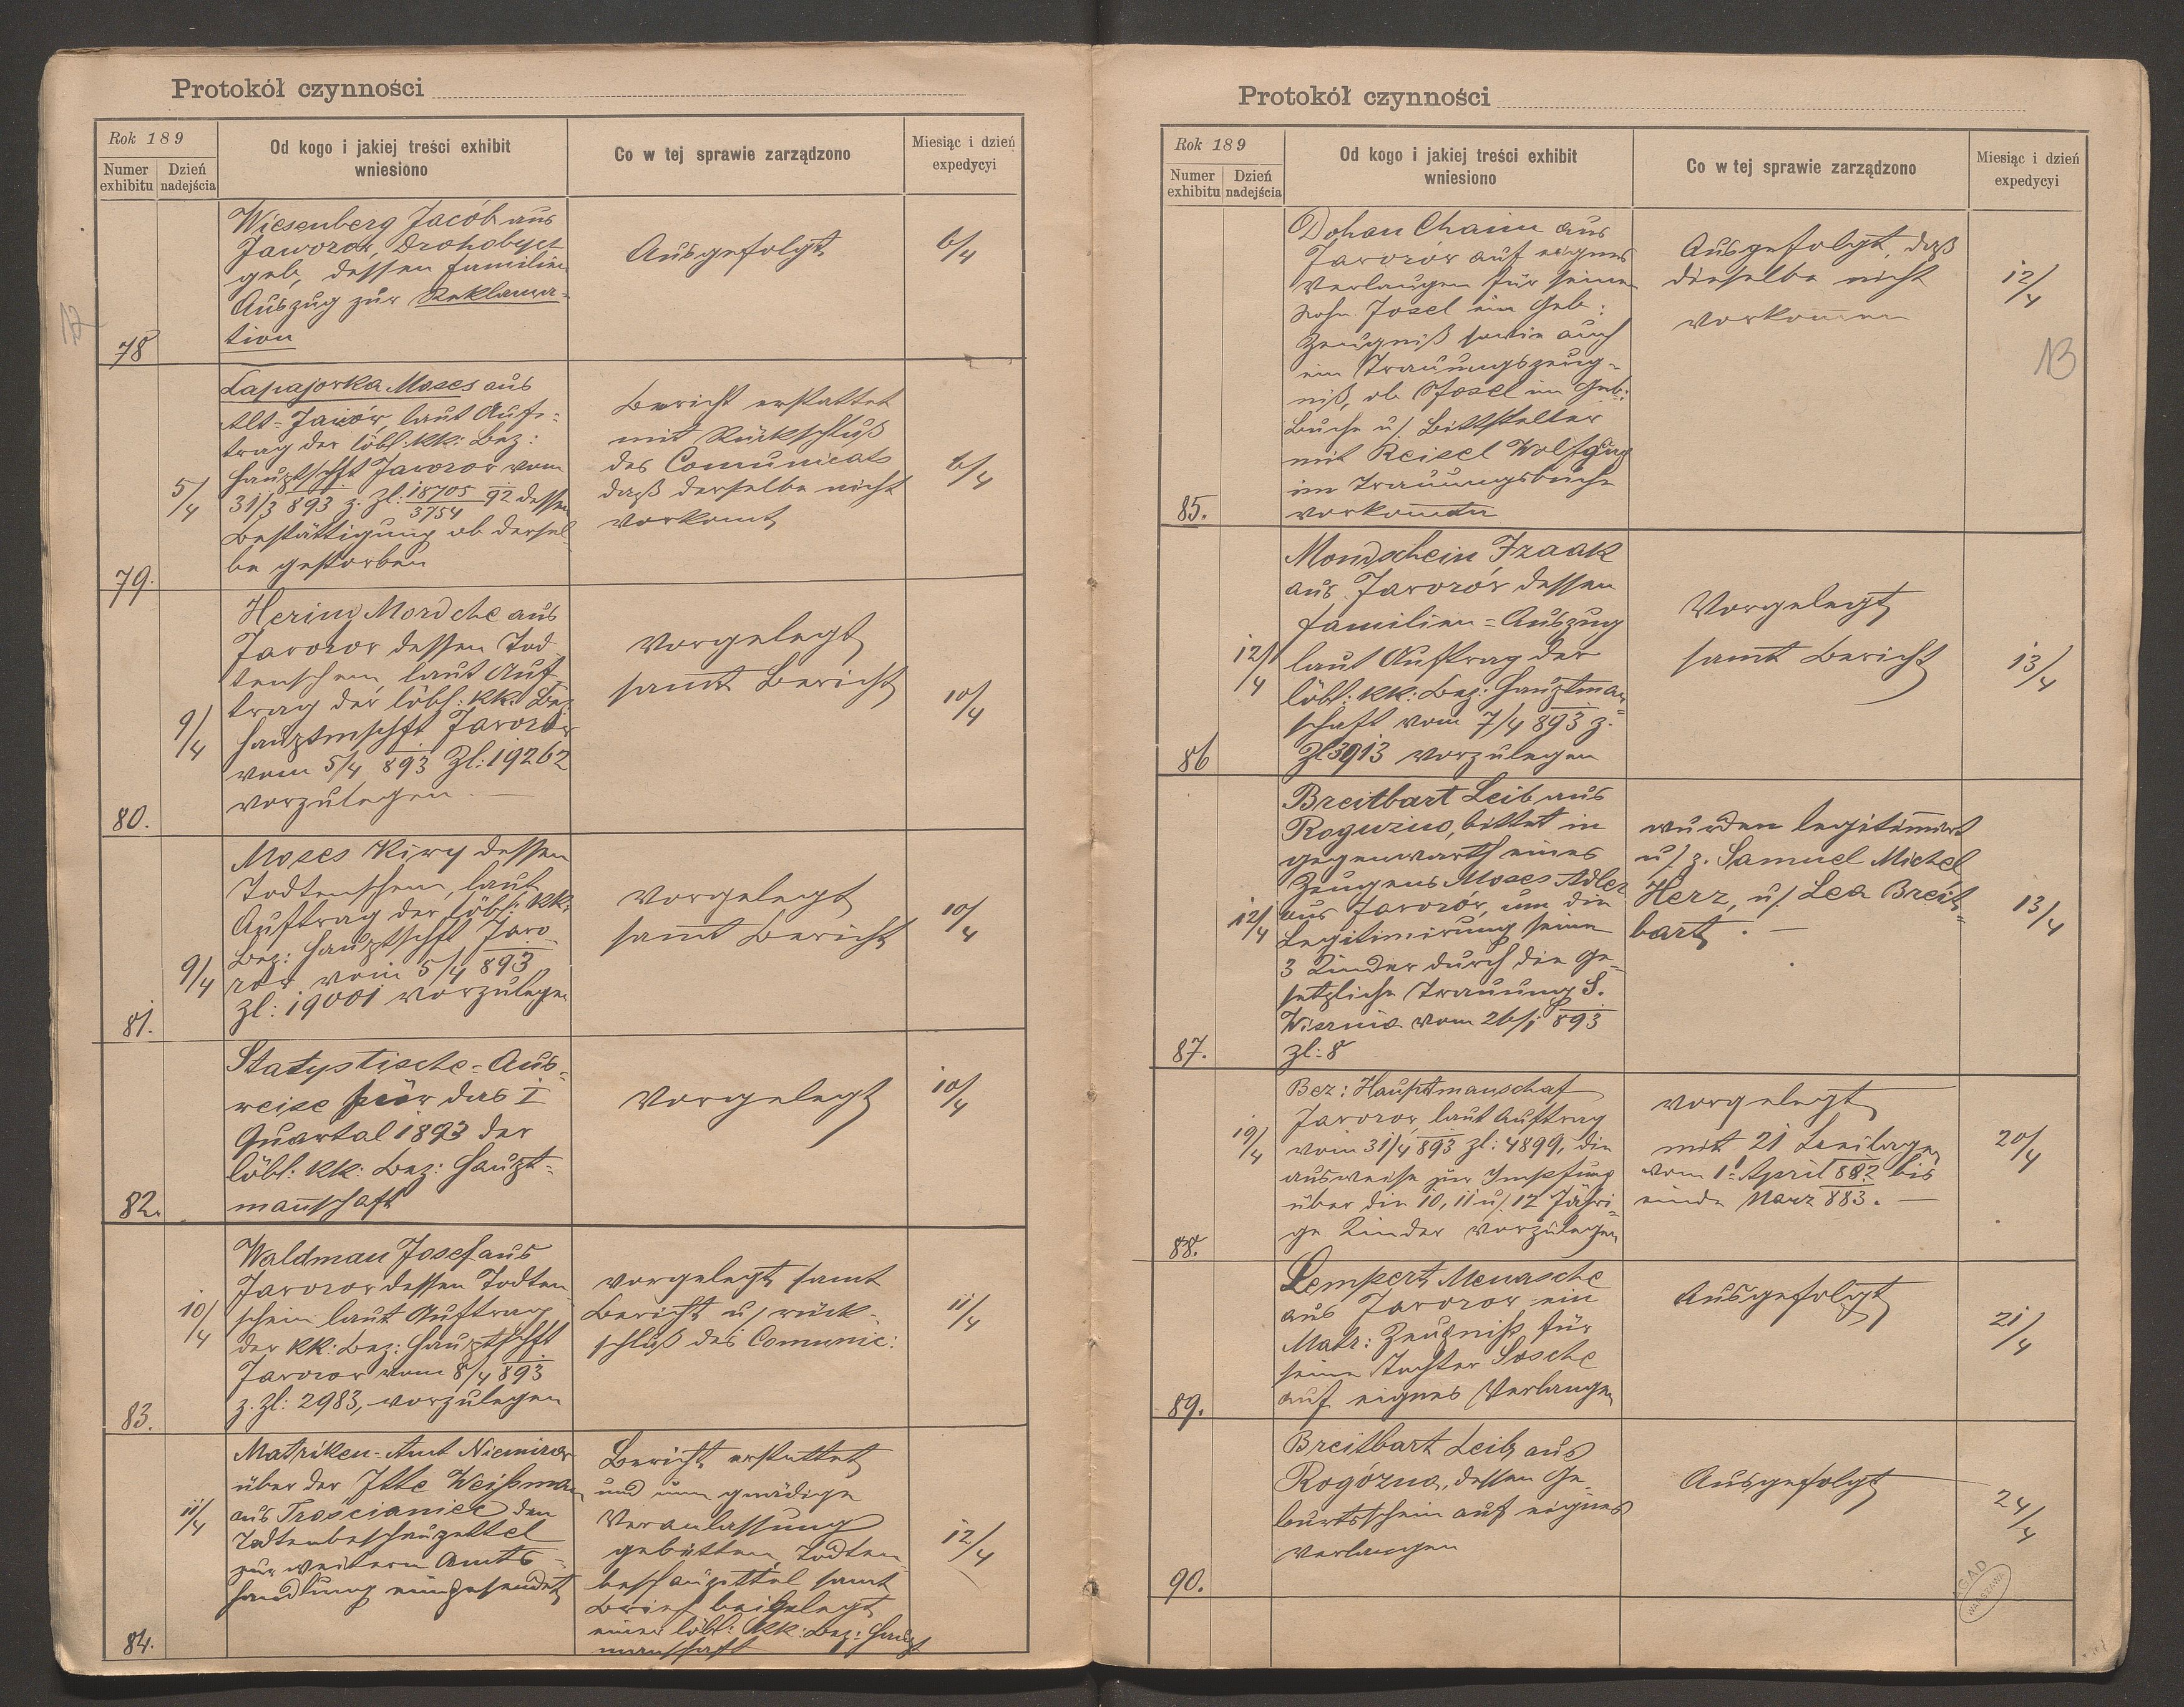 Protokół czynności
Rok 189
Numer exhibitu
Dzień nadejścia
Od kogo i jakiej treści exhibit wniesiono
Co w tej sprawie zarządzono
Miesiąc i dzień expedycyi
12
78
Wiesenberg Jacób aus
Jaworow, Drohobycz
geb, dessen Familien
Auszug zur Reklama-
tion
Ausgefolgt
6/4
79.
5/4
Lapajorka Moses aus
Alt-Jazów, laut Auf-
trag der löbl: kk: Bez:
Hauptschft Javorov vom
31/3 893 z. Zl: 18705/3754 92 dessen
Bestättigung ob dersel-
be gestorben
Bericht erstattet
mit Rückschluß
des Comunicats
daß derselbe nicht
vorkomt
6/4
80.
9/4
Hering Mordche aus
Javorov dessen Tod-
tenschein, laut Auf-
trag der löbl: kk: Bez
Hauptmschft Javorow
vom 5/4 893 Zl: 19262
vorzulegen. —
Vorgelegt
samt Bericht
10/4
81.
9/4
Moses Kiwy dessen
Todtenschein, laut
Auftrag der löbl: kk:
Bez: Hauptschft Javo-
rov vom 5/4 893
Zl: 19001 vorzulegen
Vorgelegt
samt Bericht
10/4
82.
Statystische-Aus-
weise für das I
Quartal 1893 der
löbl: kk: Bez: Haupt-
manschaft
Vorgelegt
10/4
83.
10/4
Waldman Josef aus
Javorov dessen Todten
schein laut Auftrag
der kk: Bez: Hauptschft
Javorov vom 8/4 893
z. Zl: 2983, vorzulegen
vorgelegt samt
Bericht u/ rück-
schluß des Comunic:
11/4
84.
11/4
Matriken-Amt Niemirow
über der Itte Weißman
aus Troscianiec den
Todtenbeschauzettel
zur weitern Amts-
handlung eingesendet
Bericht erstattet
und um gnädige
Veranlassung
gebetten, Todten-
beschauzettel samt
Brief beigelegt
einer löbl: kk: Bez: Haupt
manschaft
12/4
Protokół czynności
Rok 189
Numer exhibitu
Dzień nadejścia
Od kogo i jakiej treści exhibit wniesiono
Co w tej sprawie zarządzono
Miesiąc i dzień expedycyi
13
85.
Dohan Chaim aus
Javorów auf eignes
Verlangen für seinen
Sohn Josel ein Geb:
Zeugniß sowie auch
ein Trauungszeug-
niß, ob Josel im Geb:
Buche u/ Bittsteller
mit Reisel Wolfgang
im Trauungsbuche
vorkommen
Ausgefolgt, daß
dieselbe nicht
vorkommen
12/4
86
12/4
Mondschein Izaak
aus Javorów dessen
Familien-Auszug
laut Auftrag der
löbl: kk: Bez: Hauptman-
schaft vom 7/4 893 z.
Zl 3913 vorzulegen
Vorgelegt
samt Bericht
13/4
87.
12/4
Breitbart Leib aus
Roguzno, bittet in
gegenwarth eines
Zeugens Moses Adler
aus Javorov, um die
Legitimirung seine
3 Kinder durch die Ge-
setzliche Trauung S.
Wisznia vom 26/1 893
zl: 8
wurden legitimirt
u/ z. Samuel Michel
Herz, u/ Lea Breit-
bart. —
13/4
88.
19/4
Bez: Hauptmanschaf
Javorov, laut Auftrag
vom 31/4 893 zl: 4899, die
ausweise zur Impfung
über die 10, 11 u/ 12 Jähri-
ge Kinder vorzulegen
vorgelegt
mit 21 Beilagen
vom 1 April 882 bis
ende Marz 883. —
20/4
89.
Lempert Menasche
aus Javorov ein
Matr: Zeugniß für
seine Tochter Sosche
auf eignes Verlangen
Ausgefolgt
21/4
90.
Breitbart Leib aus
Rogózna, dessen Ge-
burtsschein auf eignes
verlangen
Ausgefolgt
24/4
AGAD
WARSZAWA